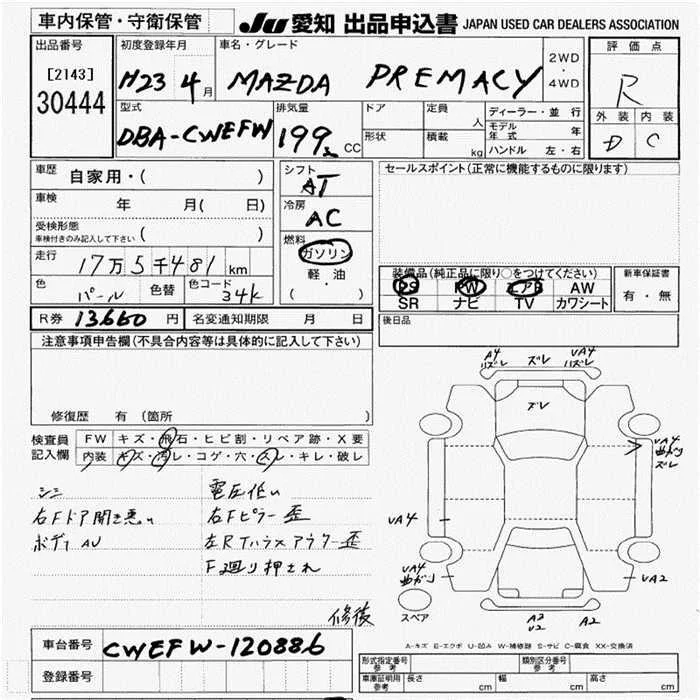 車内保管・守衛保管
JU 愛知 出品申込書 JAPAN USED CAR DEALERS ASSOCIATION
出品番号
[2143]
30444
初度登録年月
H23 4月
車名・グレード
MAZDA PREMACY
2WD
・
4WD
評価点
R
外装 内装
D C
型式
DBA-CWEFW
排気量
199 CC
ドア
形状
定員
人
積載
kg
ディーラー・並行
モデル年式 年
ハンドル 左・右
車歴
自家用・( )
車検
年 月( 日)
受検形態
車検付きのみ記入して下さい ( )
走行
17万5千481 km
色
パール
色替
色コード
34K
シフト
AT
冷房
AC
燃料
ガソリン
軽油
( ・ )
セールスポイント(正常に機能するものに限ります)
装備品(純正品に限り○をつけてください)
PS PW エアB AW
SR ナビ TV カワシート
新車保証書
有・無
R券 13,660 円
名変通知期限 月 日
後日品
注意事項申告欄(不具合内容等は具体的に記入して下さい)
修復歴 有(箇所 )
検査員
記入欄
FW キズ・飛石・ヒビ割・リペア跡・X要
内装 キズ・汚レ・コゲ・穴・スレ・キレ・破レ
シミ
右Fドア開き悪い
ボディ AU
電圧低い
右Fピラー歪
左Rトハウスアウター歪
F廻り押され
修復
A4
バズレ
ズレ
VA4
バズレ
ズレ
VA4
曲がり
ズレ
VA4
VA4
曲がり
VA2
スペア
A2
U2
A2
A-キズ E-エクボ U-凹み W-補修跡 S-サビ C-腐食 XX-交換済
車台番号
CWEFW-120886
登録番号
形式指定番号
参考
類別区分番号
参考
車庫証明用
参考
長さ cm
幅 cm
高さ cm